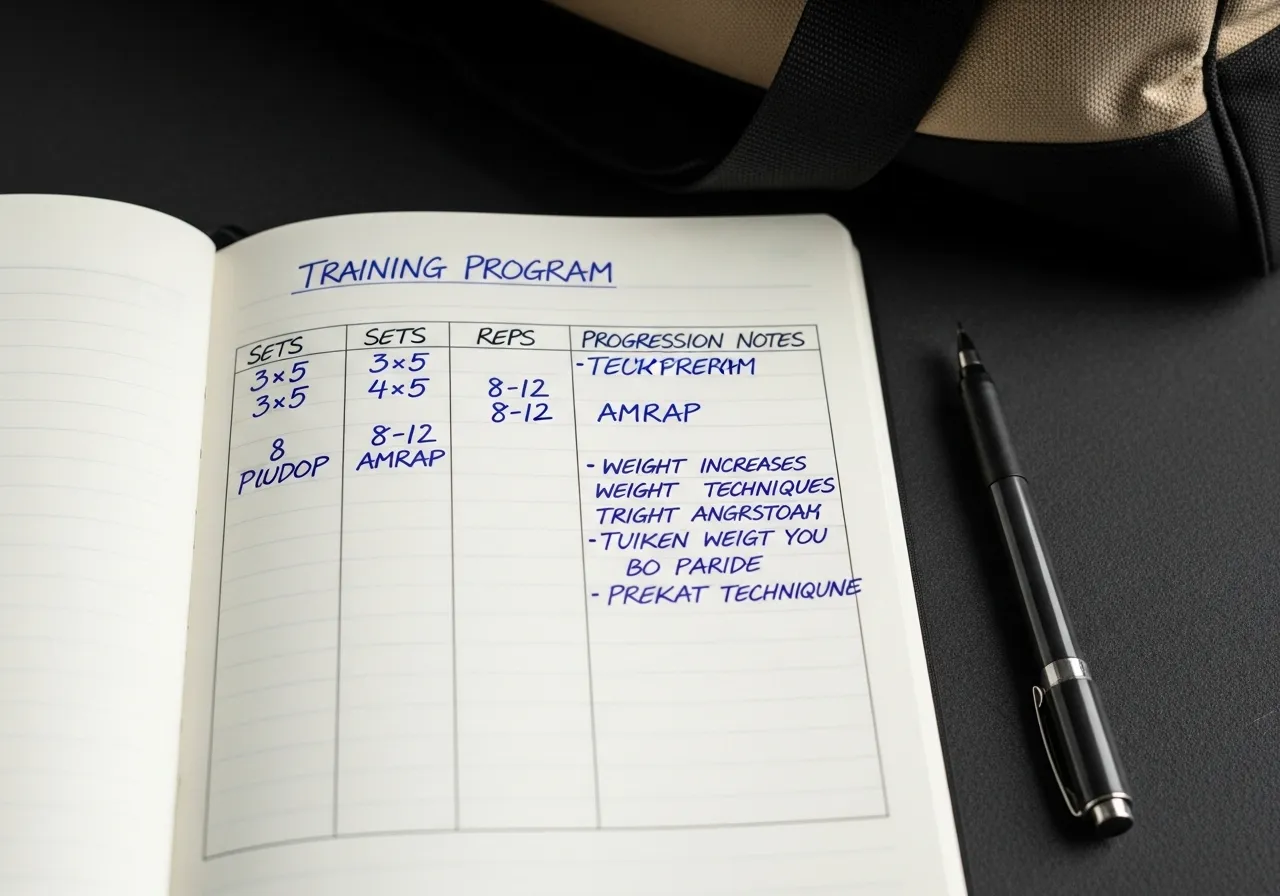 TRAINING PROGRAM
SETS SETS REPS PROGRESSION NOTES
3×5 3×5 -TECKPRERAM
3×5 4×5 8-12
8-12 AMRAP
8 8-12
PWDOP AMRAP - WEIGHT INCREASES
WEIGHT TECHNIQUES
TRIGHT ANGRSTOAM
-TUIKEN WEIGT YOU
BO PARIDE
- PREKAT TECHNIQUNE